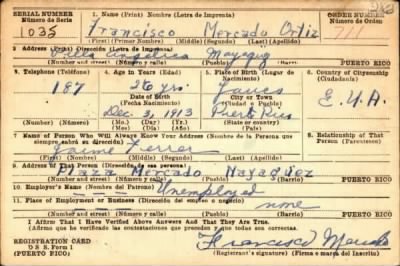 SERIAL NUMBER
Número de Serie
1. Name (Print) Nombre (Letra de Imprenta)
ORDER NUMBER
Número de Orden
1035
Francisco Mercado Ortiz
(First) (Primer Nombre) (Middle) (Segundo) (Last) (Apellido)
2 Address (Print) Dirección (Letra de Imprenta)
Villa Angélica Mayagüez
(Number and street) (Número y calle) (Town) (Pueblo) (Barrio)
PUERTO RICO
3. Telephone (Teléfono)
4. Age in Years (Edad)
5. Place of Birth (Lugar de Nacimiento)
6. Country of Citizenship (Ciudadanía)
187
26 yrs.
Yauco
Date of Birth
(Fecha Nacimiento)
City or Town
(Ciudad o Pueblo)
E.U.A.
Dec. 3, 1913
Puerto Rico
(Number) (Número)
(Mo.) (Day) (Yr.)
(Mes) (Día) (Año)
(State or country)
(Estado o país)
(País)
7 Name of Person Who Will Always Know Your Address (Nombre de la Persona que siempre sabrá su dirección)
8. Relationship of That Person (Parentesco)
Jaime Ferrer
(First) (Primer) (Middle) (Segundo) (Last) (Apellido)
9 Address of that Person (Dirección de esa persona)
Plaza Mercado Mayagüez
(Number and street) (Número y calle) (Town) (Pueblo) (Barrio)
PUERTO RICO
10. Employer's Name (Nombre del Patrono)
Unemployed
11. Place of Employment or Business (Dirección del empleo o negocio)
none
(Number and street) (Número y calle) (Town) (Pueblo) (Barrio)
PUERTO RICO
I Affirm That I Have Verified Above Answers And That They Are True.
(Afirmo que he verificado las contestaciones que preceden y que todas son ciertas)
REGISTRATION CARD
D S S Form 1
Francisco Mercado
(Registrant's signature) (Firma o marca del Inscrito)